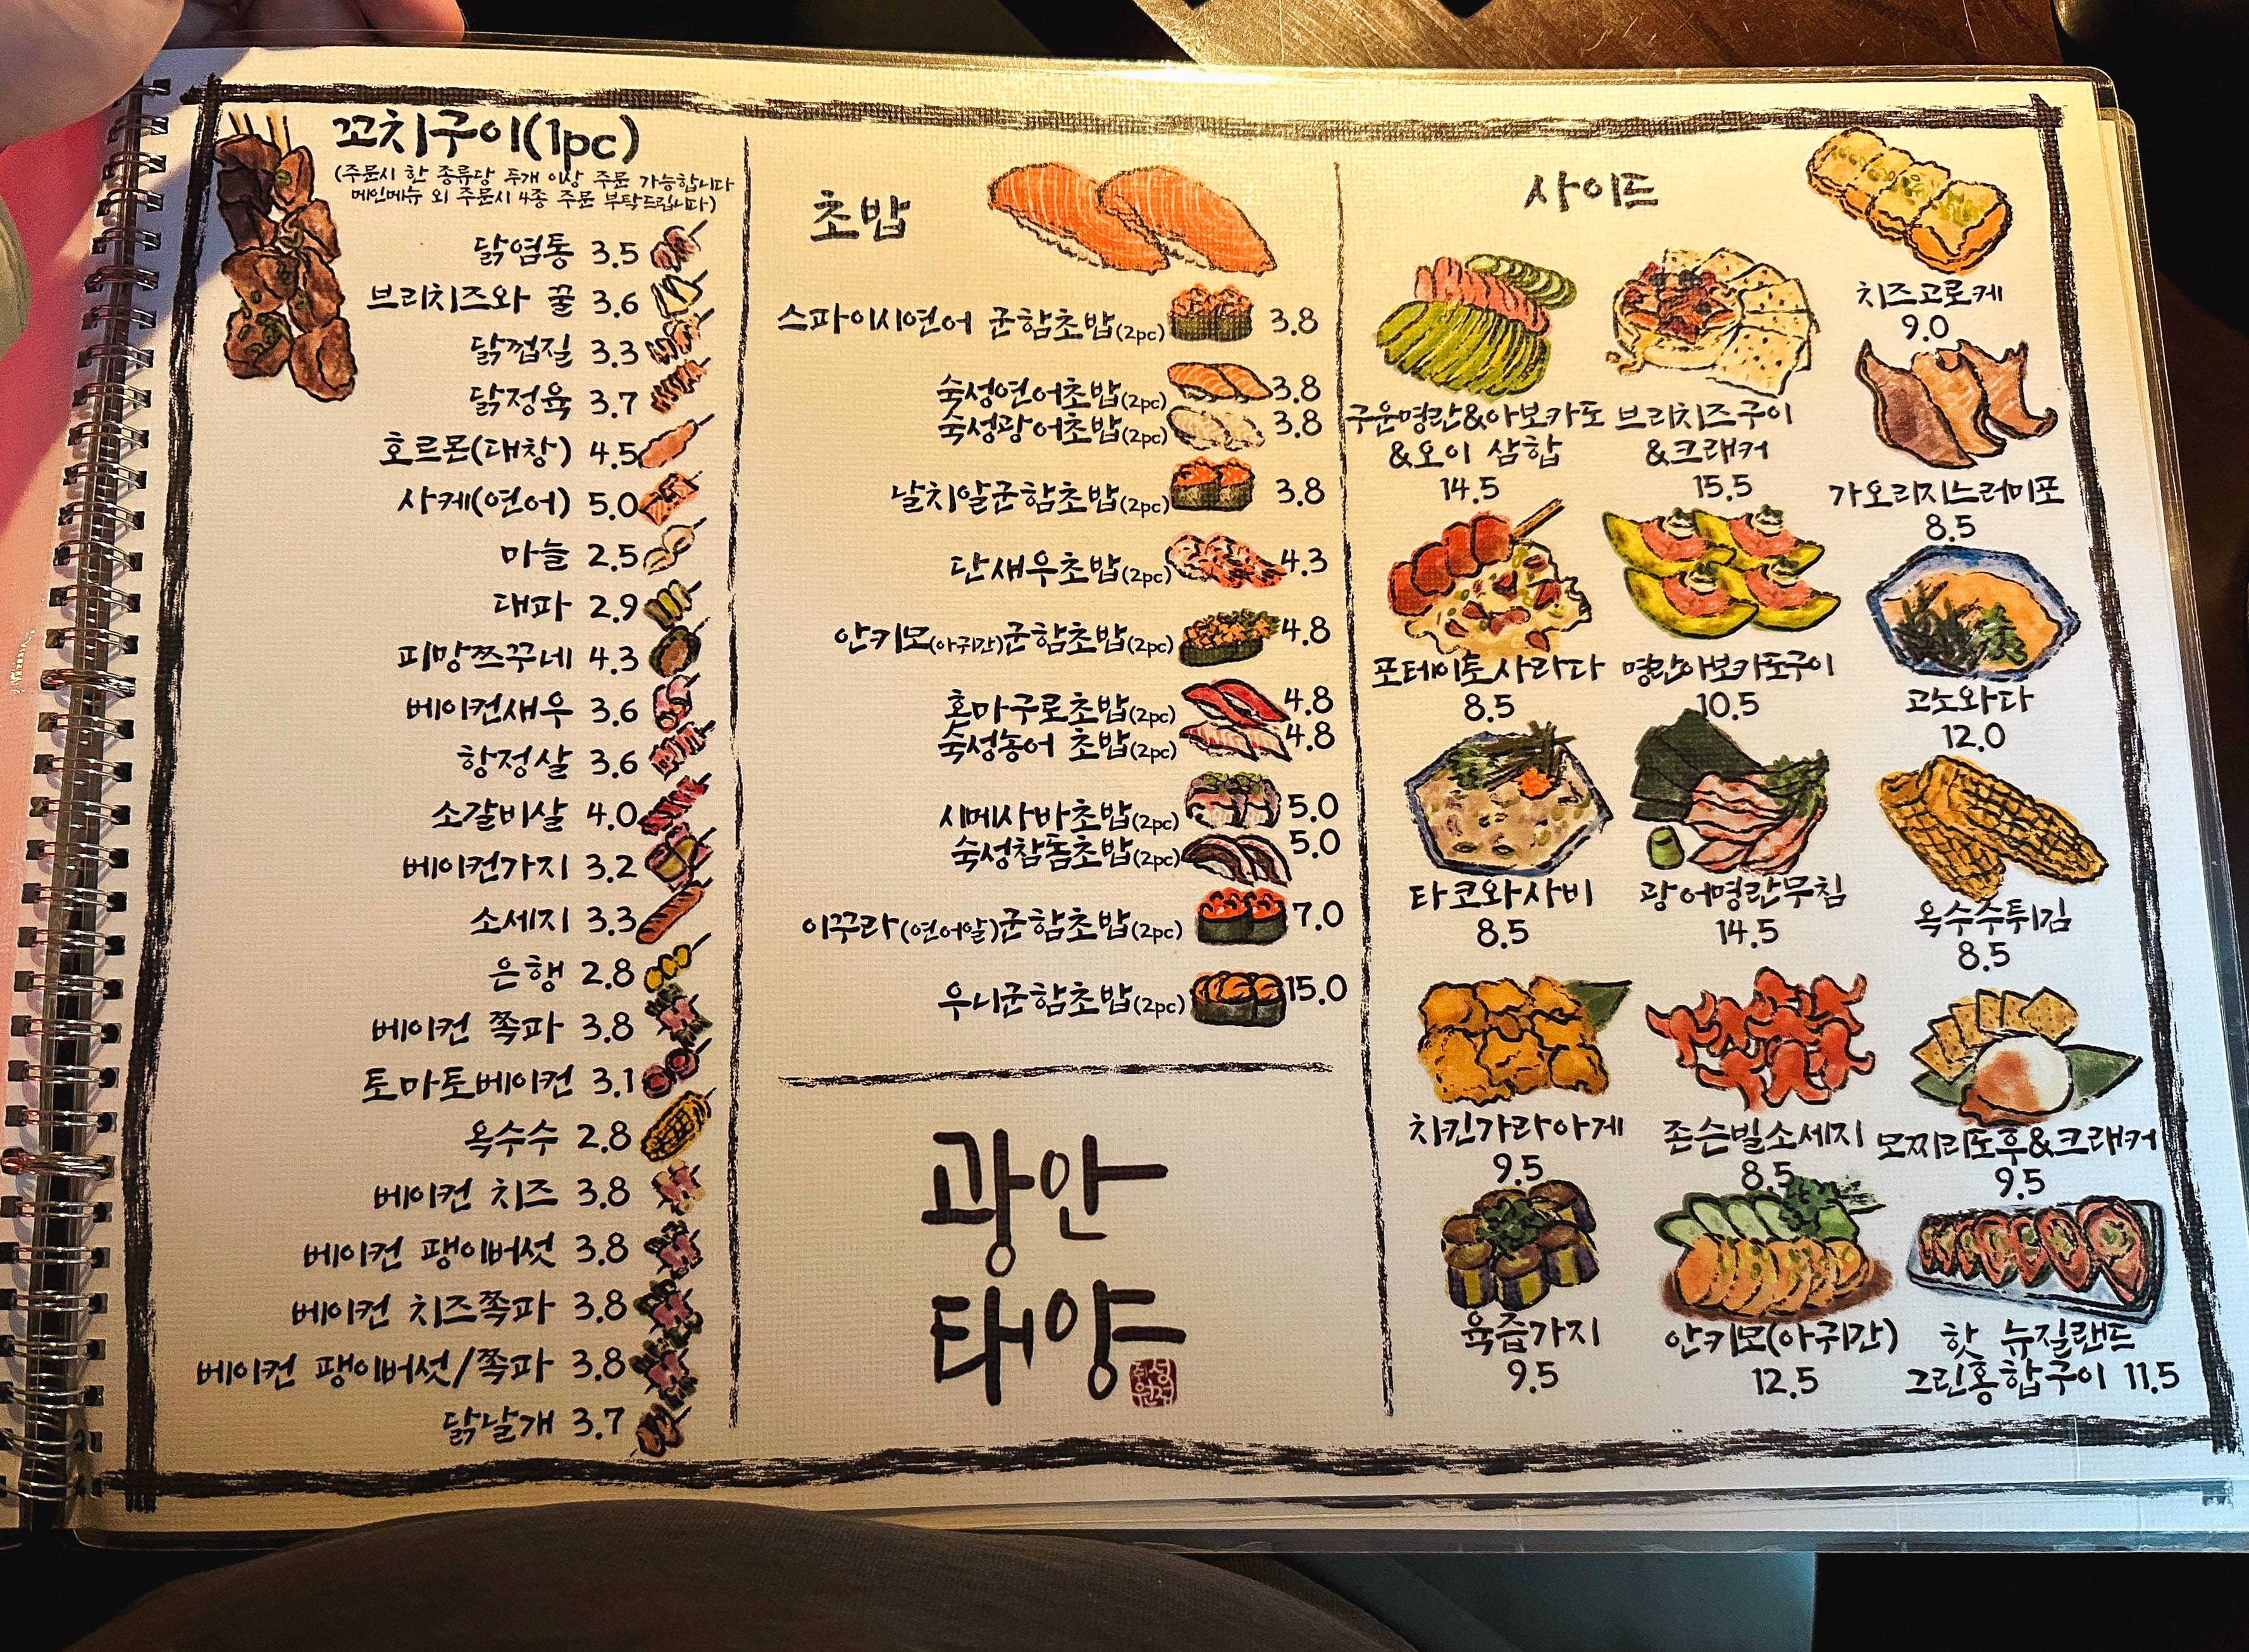 꼬치구이(1pc)
(주문시 한 종류당 두개 이상 주문 가능합니다
메인메뉴 외 주문시 4종 주문 부탁드립니다)
닭염통 3.5
브리치즈와 꿀 3.6
닭껍질 3.3
닭정육 3.7
호르몬(대창) 4.5
사케(연어) 5.0
마늘 2.5
대파 2.9
피망쯔꾸네 4.3
베이컨새우 3.6
항정살 3.6
소갈비살 4.0
베이컨가지 3.2
소세지 3.3
은행 2.8
베이컨 쪽파 3.8
토마토베이컨 3.1
옥수수 2.8
베이컨 치즈 3.8
베이컨 팽이버섯 3.8
베이컨 치즈쪽파 3.8
베이컨 팽이버섯/쪽파 3.8
닭날개 3.7
초밥
스파이시연어 군함초밥(2pc) 3.8
숙성연어초밥(2pc) 3.8
숙성광어초밥(2pc) 3.8
날치알군함초밥(2pc) 3.8
단새우초밥(2pc) 4.3
안키모(아귀간)군함초밥(2pc) 4.8
혼마구로초밥(2pc) 4.8
숙성농어 초밥(2pc) 4.8
시메사바초밥(2pc) 5.0
숙성참돔초밥(2pc) 5.0
이꾸라(연어알)군함초밥(2pc) 7.0
우니군함초밥(2pc) 15.0
광안
태양
사이드
치즈고로케
9.0
구운명란&아보카도
&오이 삼합
14.5
브리치즈구이
&크래커
15.5
가오리지느러미포
8.5
포테이토사라다
8.5
명란아보카도구이
10.5
고노와다
12.0
타코와사비
8.5
광어명란무침
14.5
옥수수튀김
8.5
치킨가라아게
9.5
존슨빌소세지
8.5
모찌리도후&크래커
9.5
육즙가지
9.5
안키모(아귀간)
12.5
핫 뉴질랜드
그린홍합구이 11.5